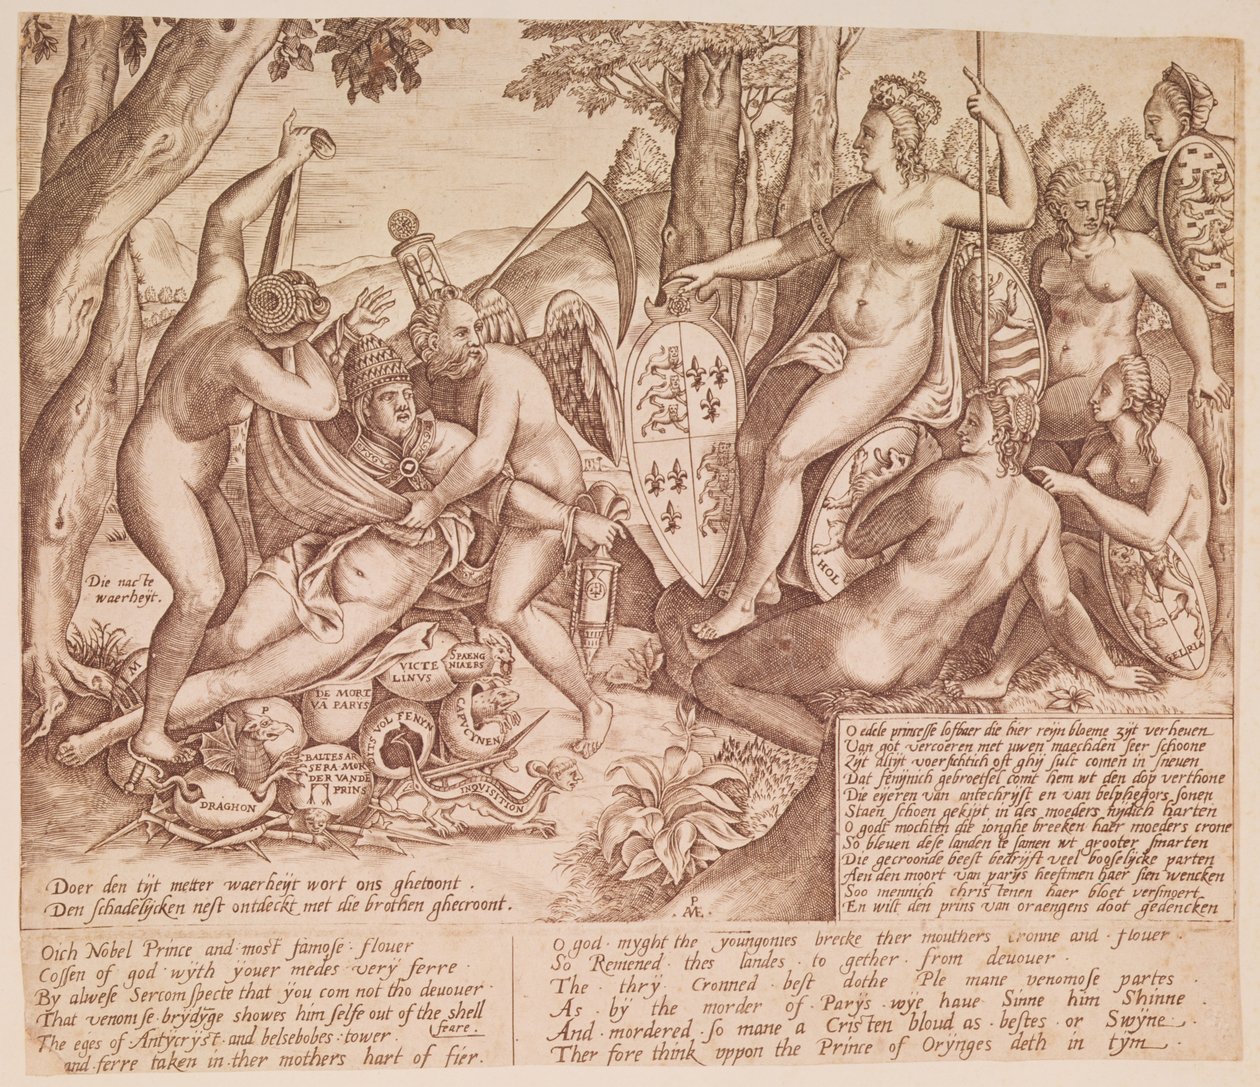 Die nacte
waerheyt.
M
P
VICTE
LINUS
SPAENG
NIAERS
DE MORT
VA PARYS
VOL FENYN
CAPV
CYNEN
BALTESAR
SERA MOR
DER VANDE
PRINS
INQUISITSON
DRAGHON
HOL
GELRIA
Doer den tijt metter waerheijt wort ons ghetoont.
Den schadelijcken nest ontdeckt met die brothen ghecroont.
P
AVE.
O edele princesse lofbaer die hier reijn bloeme zijt verheuen
Van got vercoeren met uwen maechden seer schoone
Zijt altijt voersichtich oft ghij sult comen in sneuen
Dat fenijnich gebroetsel comt hem wt den dop verthone
Die eijeren van antechrijst en van belphegors sonen
Staen schoen gekipt in des moeders nydich harten
O godt mochten die ionghe breeken haer moeders crone
So bleuen dese landen te samen wt grooter smarten
Die gecroonde beest bedrijft veel booselijcke parten
Aen den moort van parijs heeftmen haer sien wencken
Soo mennich christenen haer bloet versmoert
En wilt den prins van oraengens doot gedencken
Oich Nobel Prince and most famose flouer
Cossen of god wyth ÿouer medes verÿ ferre
By alwese Sercomspecte that ÿou com not tho deuouer
That venomse brydÿge showes him selfe out of the shell
The eges of Antÿcrÿst and belsebobes tower
feare.
und ferre taken in ther mothers hart of fier.
O god myght the youngonies brecke ther mouthers cronne and flouer
So Remened thes landes to gether from deuouer
The thrÿ Cronned best dothe Ple mane venomose partes
As bÿ the morder of Parÿs wÿe haue Sinne him Shinne
And mordered so mane a Cristen bloud as bestes or Swÿne
Ther fore think vppon the Prince of Orÿnges deth in tÿm